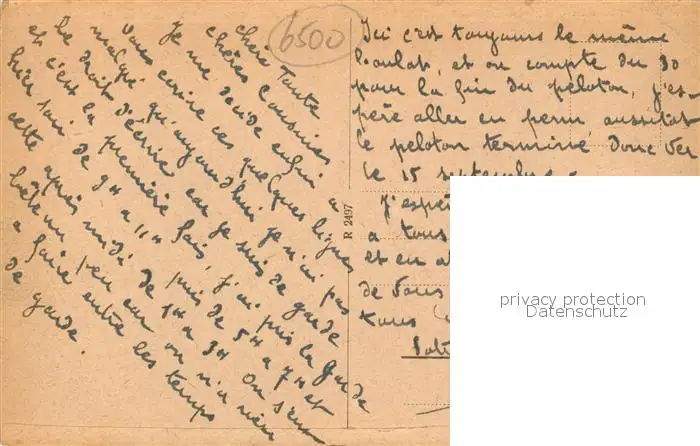 6500
Chère Tante
chères Cousines
Je me décide enfin a
vous ecrire ces quelques lignes
malgré qu'aujourd'hui je n'ai pas
le droit d'écrire car je suis de garde
et c'est la première fois, j'ai pris la garde
hier soir de 9H a 11H puis de 5H a 7H et
cette après midi de 1H a 3H On s'em
bête un peu car on n'a rien
a faire entre les temps
de garde.
R 2497
Ici c'est toujours le même
boulot, et on compte du 30
pour la fin du peloton, j'es-
père aller en perm aussitot
le peloton terminé donc ver
le 15 septembre.
J'espè
a tous
et en at
de Vous
tous
Votr
privacy protection
Datenschutz